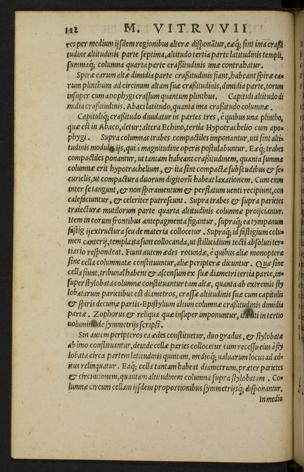 142 M. VITRVVII
res per medium ijsdem regionibus alteræ disponãtur, eæq; sint ima crassi
tudine altitudinis parte septima, altitudo tertia parte latitudinis templi,
summaq; columna quarta parte crassitudinis imæ contrahatur.
Spiræ earum altæ dimidia parte crassitudinis fiant, habeant spiræ ea-
rum plinthum ad circinum altum suæ crassitudinis, dimidia parte, torum
insuper cum apophygi crassum quantum plinthus. Capituli altitudo di
midia crassitudinis. Abaci latitudo, quanta ima crassitudo columnæ.
Capituliq; crassitudo diuidatur in partes tres, è quibus una plintho,
quæ est in Abaco, detur, altera Echino, tertia Hypotrachelio cum apo
phygi. Supra columnas trabes compactiles imponantur, ut sint alti-
tudinis modulis ijs, qui à magnitudine operis postulabuntur. Eæq; trabes
compactiles ponantur, ut tantam habeant crassitudinem, quanta summæ
columnæ erit hypotrachelium, & ita sint compactæ subscudibus & se
curiclis, ut compactura duorum digitorũ habeat laxationem. Cum enim
inter se tangunt, & non spiramentum & perflatum uenti recipiunt, con
calefaciuntur, & celeriter putrescunt. Supra trabes & supra parietes
traiecturæ mutilorum parte quarta altitudinis columnæ proijciantur.
Item in eorum frontibus antepagmenta figantur, supraq; ea tympanum
fastigij ex structura seu de materia collocetur. Supraq; id fastigium colu-
men canterij, templa ita sunt collocanda, ut stillicidium tecti absoluti ter-
tiario respondeat. Fiunt autem ædes rotundæ, è quibus aliæ monopteræ
sine cella columnatæ constituuntur, aliæ peripteræ dicuntur. Quæ sine
cella fiunt, tribunal habent & ascensum ex suæ diametri tertia parte, in-
super stylobata columnæ constituuntur tam altæ, quanta ab extremis sty
lobatarum parietibus est diametros, crassæ altitudinis suæ cum capitulis
& spiris decumæ partis. Epistylium altum columnæ crassitudinis dimidia
parte. Zophorus & reliqua quæ insuper imponuntur, ita uti in tertio
uolumine de symmetrijs scripsi.
Sin autem peripteros ea ædes constituetur, duo gradus, & stylobata
ab imo constituantur, deinde cella paries collocetur cum recessu eius à sty
lobata circa partem latitudinis quintam, medioq; ualuarum locus ad adi-
tus relinquatur. Eaq; cella tantam habeat diametrum, præter parietes
& circuitionem, quantam altitudinem columna supra stylobatam. Co-
lumnæ circum cellam ijsdem proportionibus symmetrijsq; disponantur.
In medio